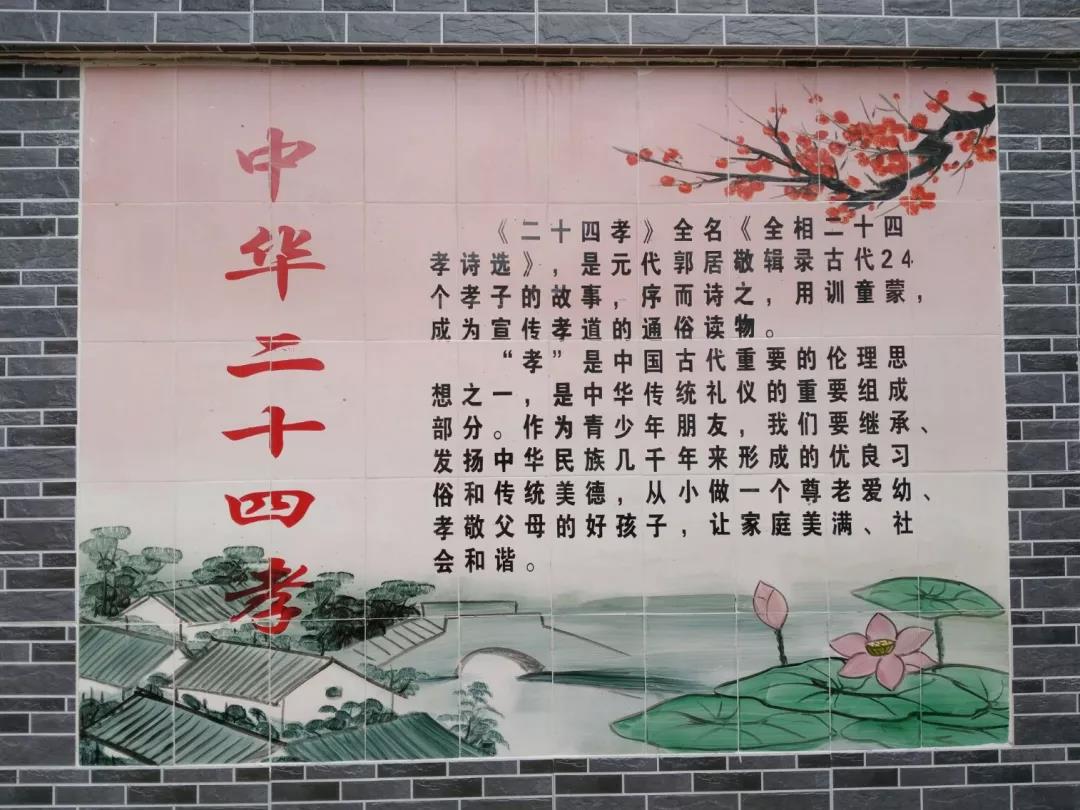 中华二十四孝
《二十四孝》全名《全相二十四
孝诗选》，是元代郭居敬辑录古代24
个孝子的故事，序而诗之，用训童蒙，
成为宣传孝道的通俗读物。
“孝”是中国古代重要的伦理思
想之一，是中华传统礼仪的重要组成
部分。作为青少年朋友，我们要继承、
发扬中华民族几千年来形成的优良习
俗和传统美德，从小做一个尊老爱幼、
孝敬父母的好孩子，让家庭美满、社
会和谐。